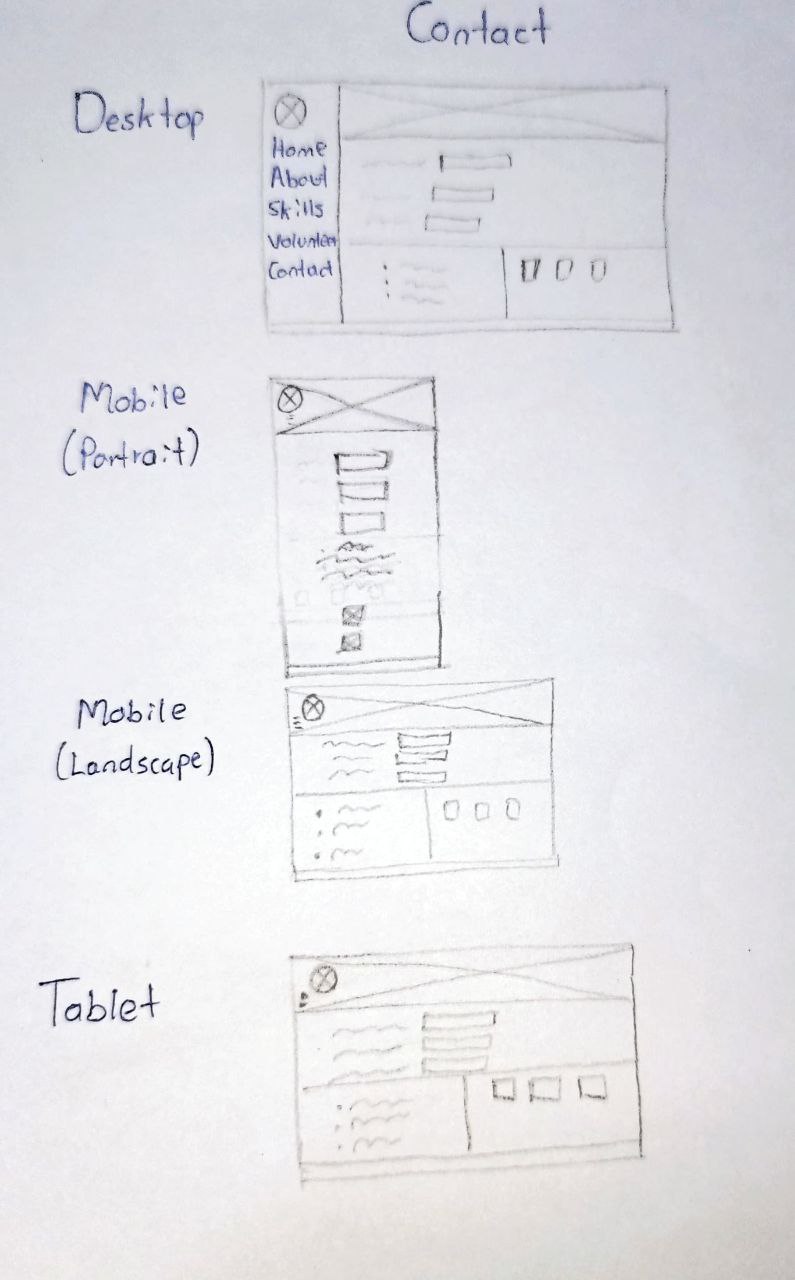 Contact
Desktop
Home
About
Skills
Volunteer
Contact
Mobile
(Portrait)
Mobile
(Landscape)
Tablet